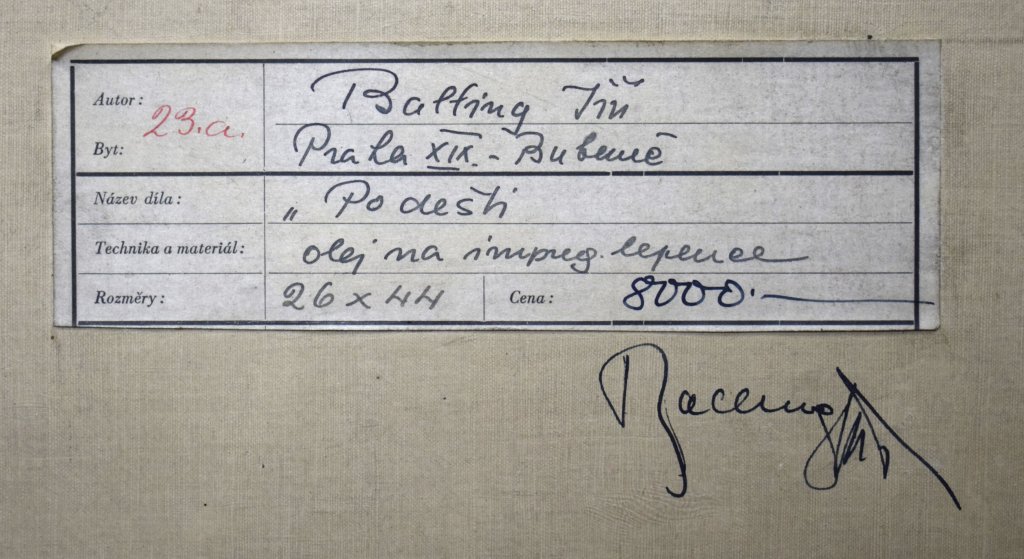 Autor: Balling Jiří
23.a.
Byt: Praha XIX. - Bubeneč
Název díla: „ Po dešti
Technika a materiál: olej na impreg. lepence
Rozměry: 26 x 44 Cena: 8000.—